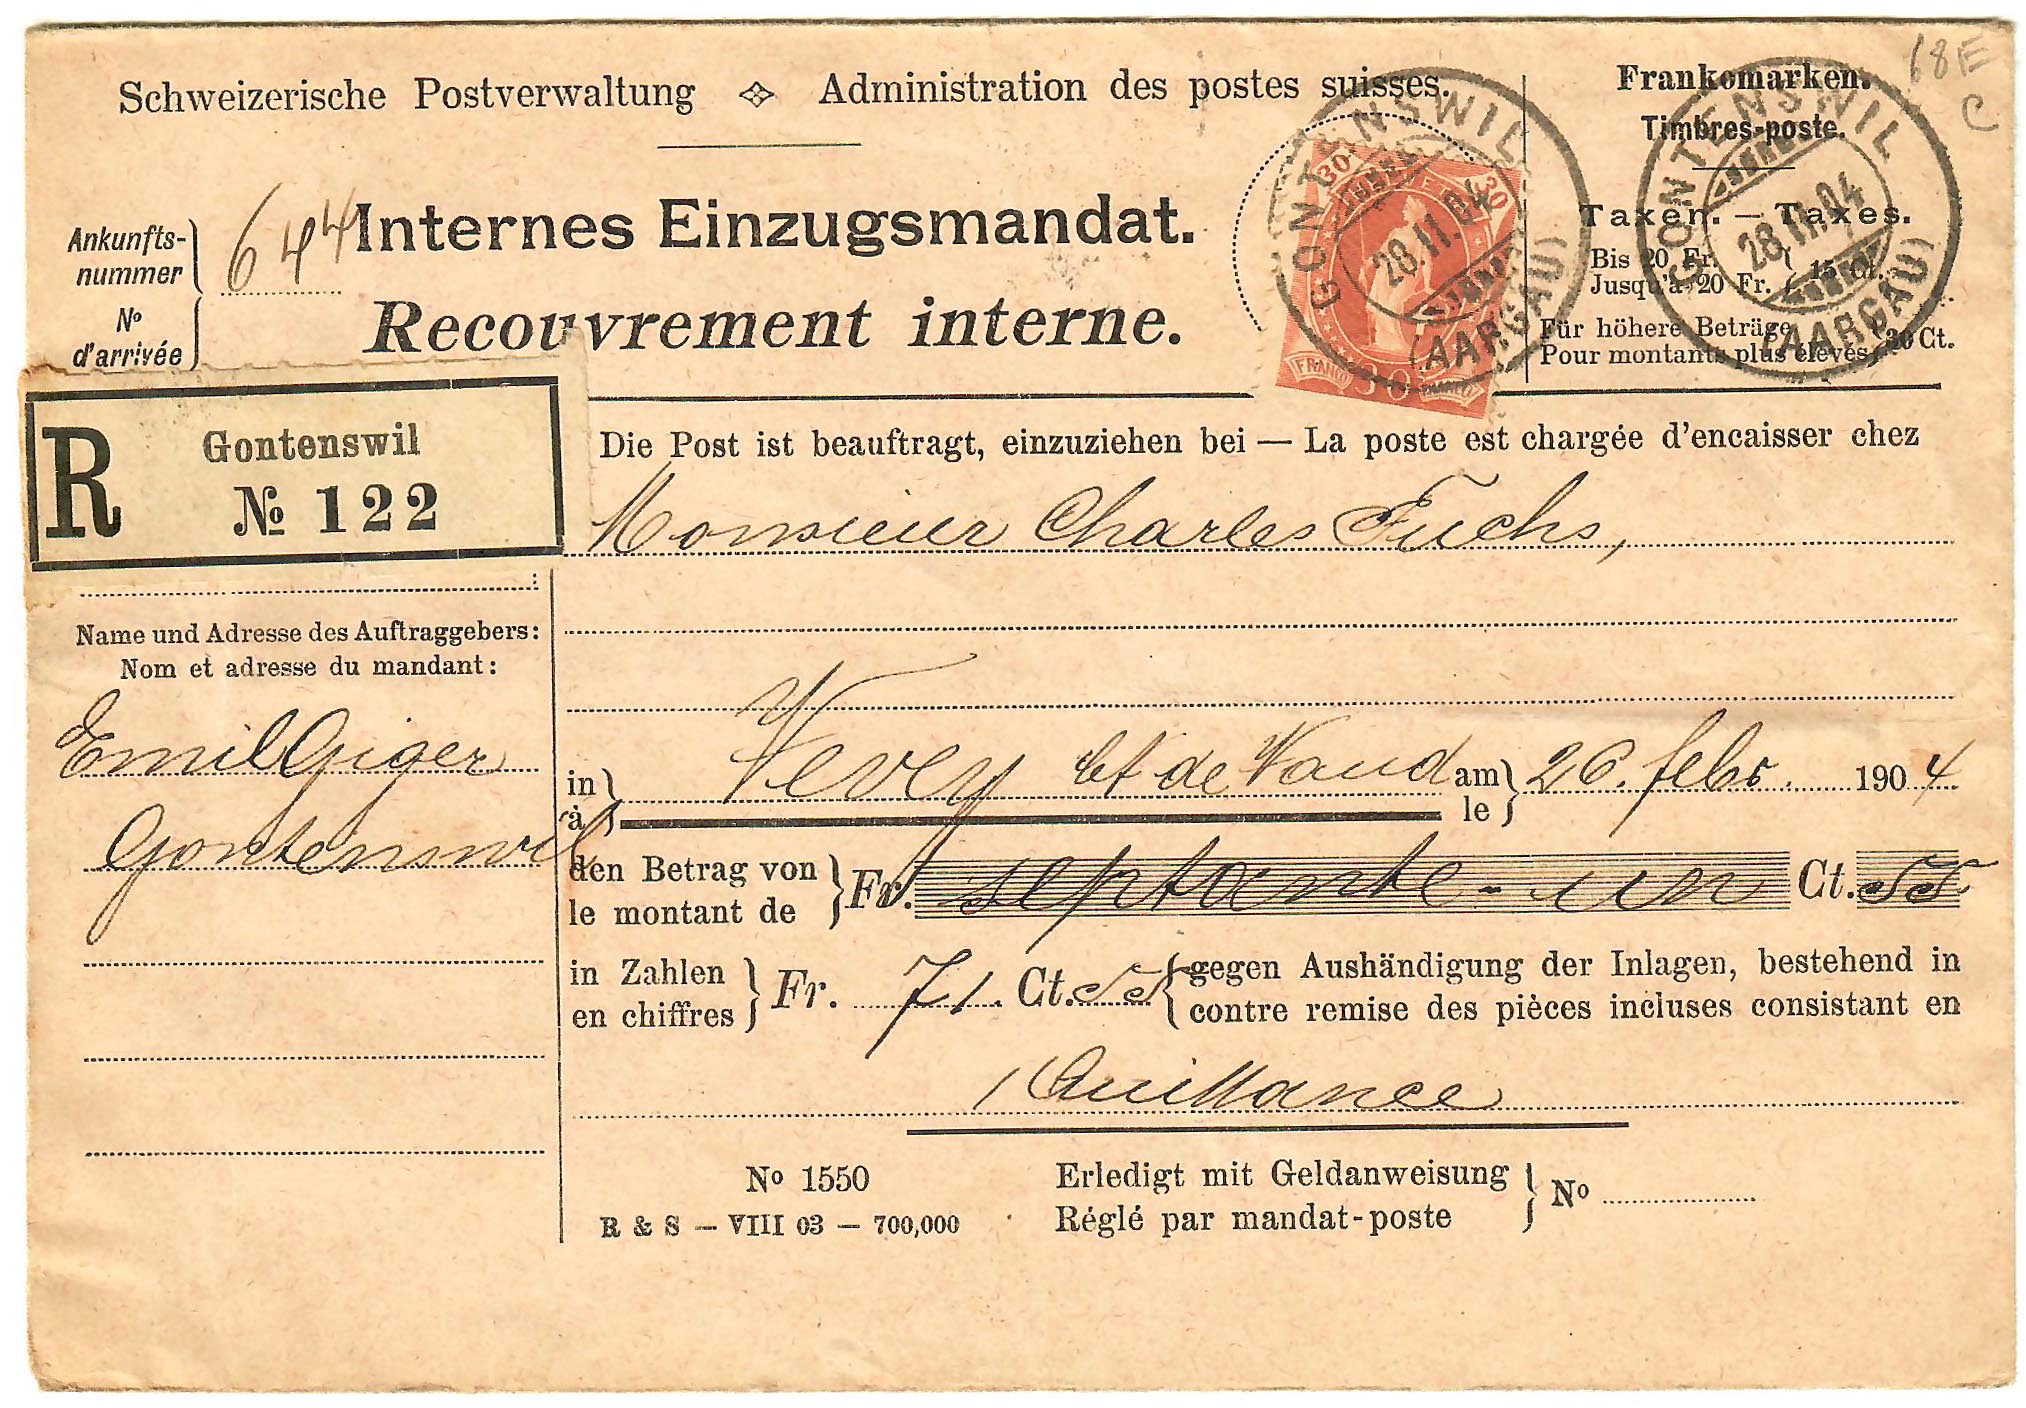 68E
C
Schweizerische Postverwaltung Administration des postes suisses.
Frankomarken.
Timbres-poste.
Ankunfts-
nummer
No
d'arrivée
644
Internes Einzugsmandat.
Recouvrement interne.
GONTENSWIL
28.II.04
(AARGAU)
30 30
FRANCO 30 FRANCO
GONTENSWIL
28.II.04
(AARGAU)
Taxen. — Taxes.
Bis 20 Fr.
Jusqu'à 20 Fr. 15 Ct.
Für höhere Beträge
Pour montants plus élevés 30 Ct.
R Gontenswil
No 122
Die Post ist beauftragt, einzuziehen bei — La poste est chargée d'encaisser chez
Monsieur Charles Fuchs,
Name und Adresse des Auftraggebers:
Nom et adresse du mandant:
Emil Giger
Gontenswil
in
à Vevey Ct de Vaud am
le 26. febr. 1904
den Betrag von
le montant de Fr. septante-un Ct. 55
in Zahlen
en chiffres Fr. 71. Ct. 55 gegen Aushändigung der Inlagen, bestehend in
contre remise des pièces incluses consistant en
1 Quittance
No 1550
R & S — VIII 03 — 700,000
Erledigt mit Geldanweisung
Réglé par mandat-poste No